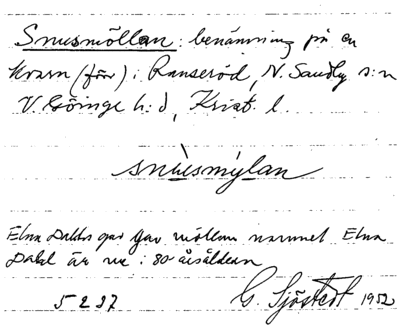 Snusmöllan: benämning på en
kvarn (för) i Ranseröd, N. Sandby s:n
V Göinge h:d, Krist. l.
snusmýlan
Elna Dahls far gav möllan namnet Elna
Dahl är nu i 80 årsåldern
5 2 37 G. Sjöstedt 1952